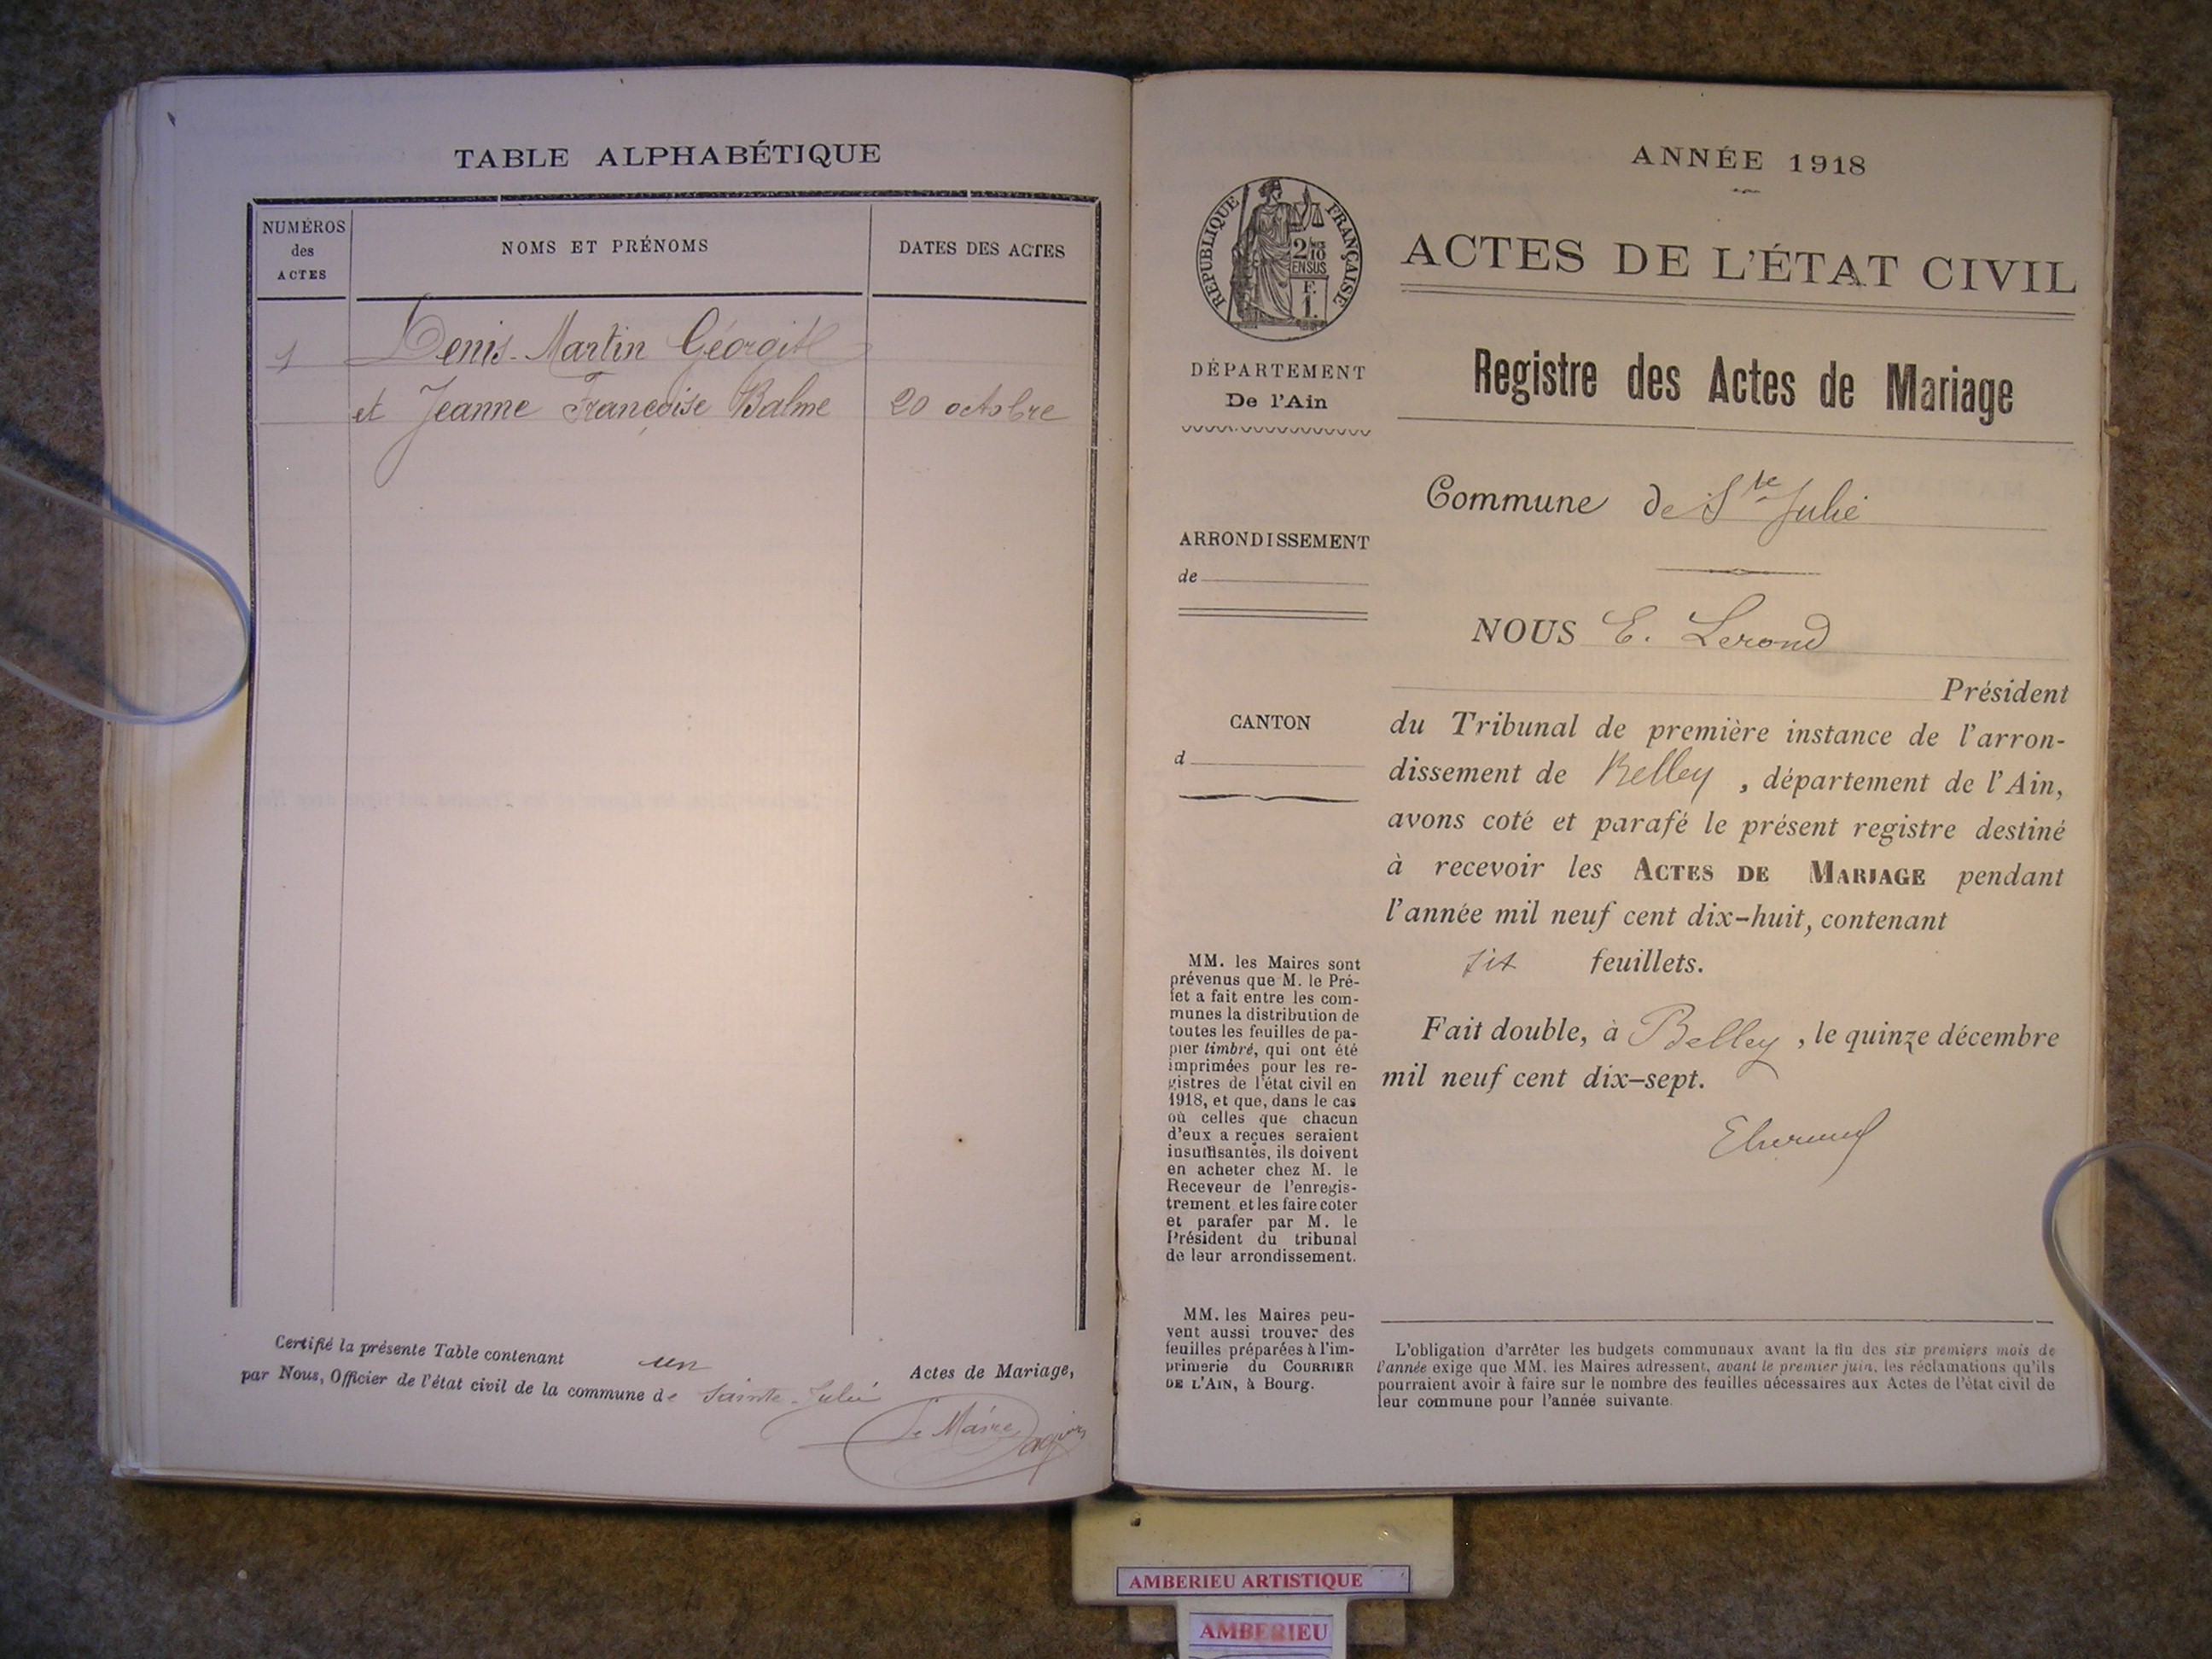 TABLE ALPHABÉTIQUE
NUMÉROS
des
ACTES
NOMS ET PRÉNOMS
DATES DES ACTES
1 Denis-Martin
et Jeanne Françoise Balme 20 octobre
Certifié la présente Table contenant un Actes de Mariage,
par Nous, Officier de l'état civil de la commune de Sainte-Julie
Le Maire
ANNÉE 1918
RÉPUBLIQUE FRANÇAISE
2/10
EN SUS
F.
1.
ACTES DE L'ÉTAT CIVIL
DÉPARTEMENT
De l'Ain
Registre des Actes de Mariage
Commune de Ste Julie
ARRONDISSEMENT
de
NOUS E. Lerond
Président
CANTON
d
du Tribunal de première instance de l'arron-
dissement de Belley, département de l'Ain,
avons coté et parafé le présent registre destiné
à recevoir les ACTES DE MARIAGE pendant
l'année mil neuf cent dix-huit, contenant
six feuillets.
Fait double, à Belley, le quinze décembre
mil neuf cent dix-sept.
MM. les Maires sont
prévenus que M. le Pré-
fet a fait entre les com-
munes la distribution de
toutes les feuilles de pa-
pier timbré, qui ont été
imprimées pour les re-
gistres de l'état civil en
1918, et que, dans le cas
où celles que chacun
d'eux a reçues seraient
insuffisantes, ils doivent
en acheter chez M. le
Receveur de l'enregis-
trement et les faire coter
et parafer par M. le
Président du tribunal
de leur arrondissement.
MM. les Maires peu-
vent aussi trouver des
feuilles préparées à l'im-
primerie du COURRIER
DE L'AIN, à Bourg.
L'obligation d'arrêter les budgets communaux avant la fin des six premiers mois de
l'année exige que MM. les Maires adressent, avant le premier juin, les réclamations qu'ils
pourraient avoir à faire sur le nombre des feuilles nécessaires aux Actes de l'état civil de
leur commune pour l'année suivante.
AMBERIEU ARTISTIQUE
AMBERIEU